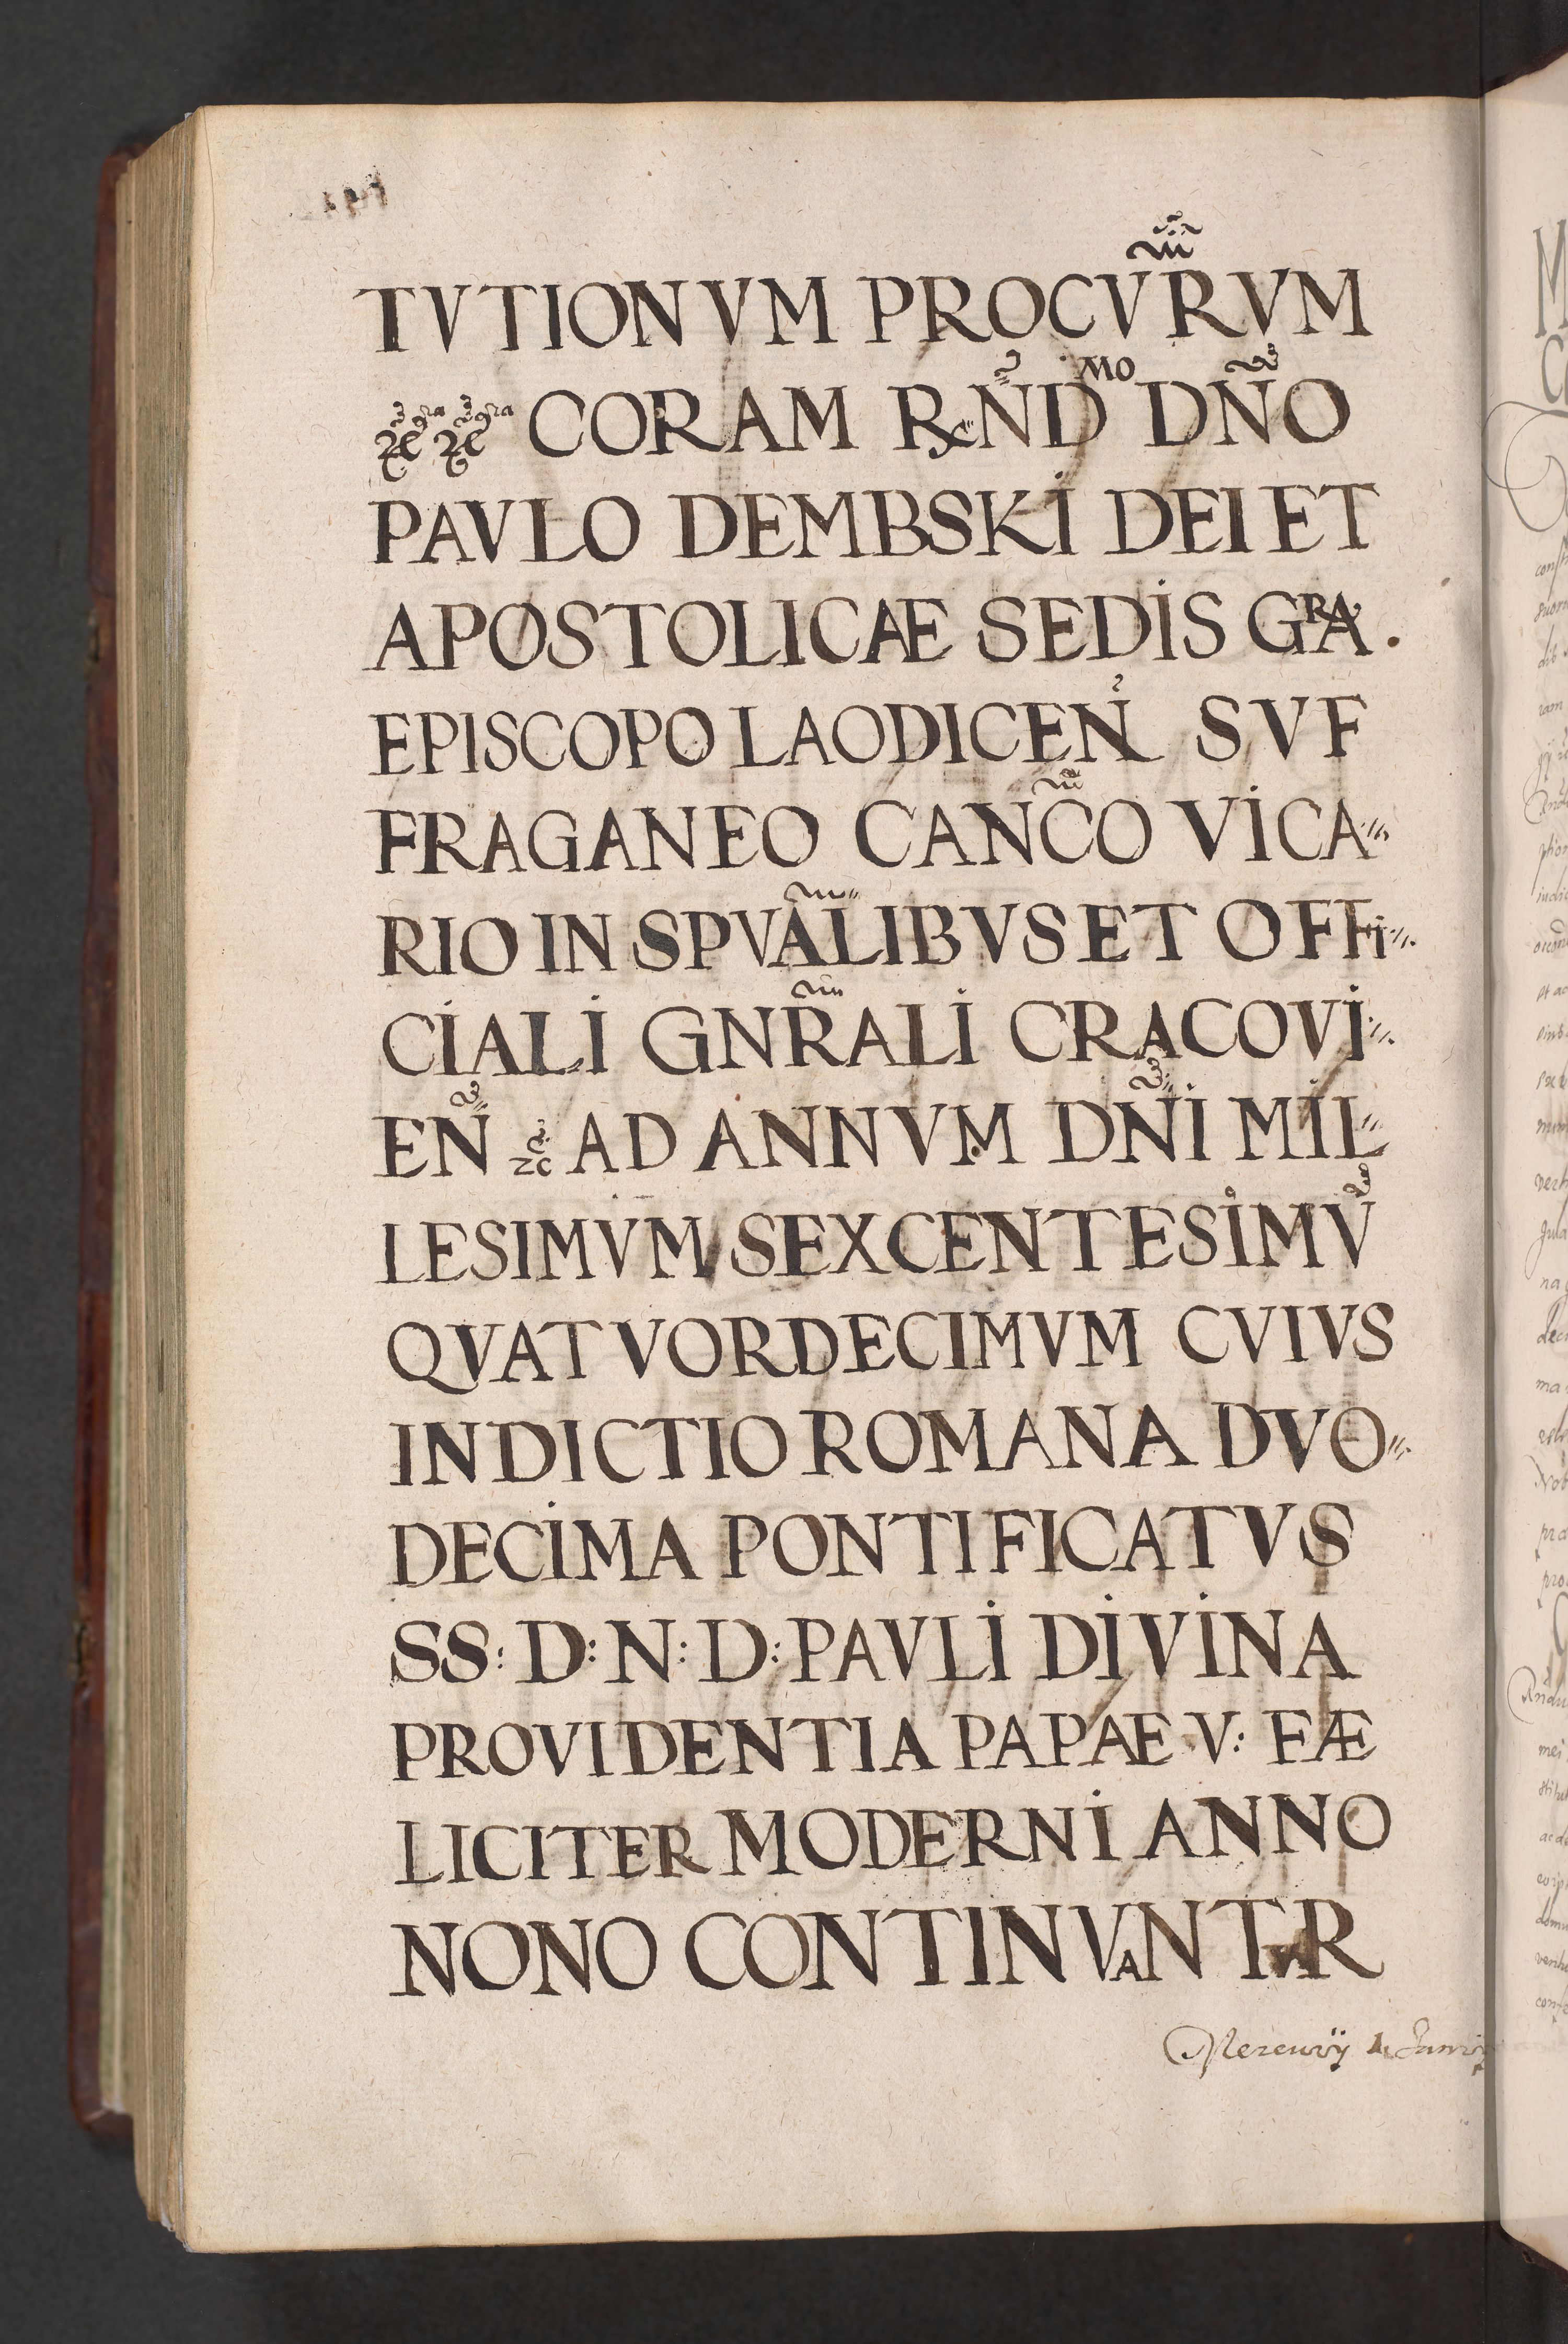 TVTIONVM PROCVR̃VM
CORAM RÑDMO DÑO
PAVLO DEMBSKI DEI ET
APOSTOLICÆ SEDIS GRA.
EPISCOPO LAODICEN̉ SVF
FRAGANEO CANC̃O VICA
RIO IN SPVAL̃IBVS ET OFFi
CIALI GNR̃ALI CRACOVI
EÑ AD ANNVM DÑI MIL
LESIMVM SEXCENTESIMṼ
QVATVORDECIMVM CVIVS
INDICTIO ROMANA DVO
DECIMA PONTIFICATVS
SS: D: N: D: PAVLI DIVINA
PROVIDENTIA PAPAE V: FÆ
LICITER MODERNI ANNO
NONO CONTINVANTVR
Mercurÿ